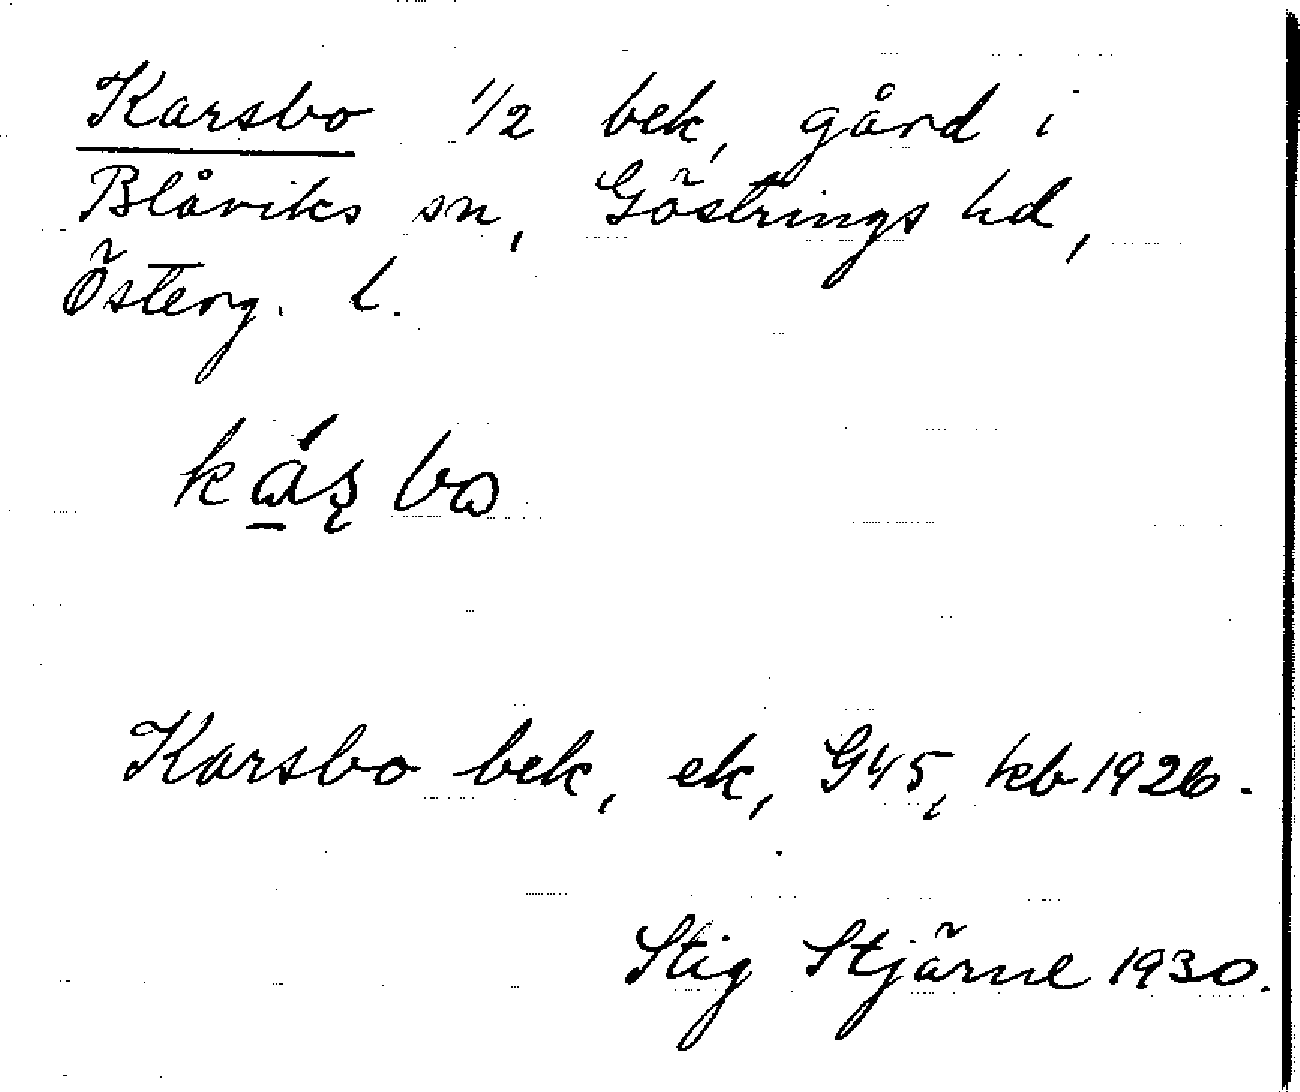 Karsbo 1/2 bek, gård i
Blåviks sn, Göstrings hd,
Österg. l.
Karsbo bek, ek, G45, kb 1926.
Stig Stjärne 1930.